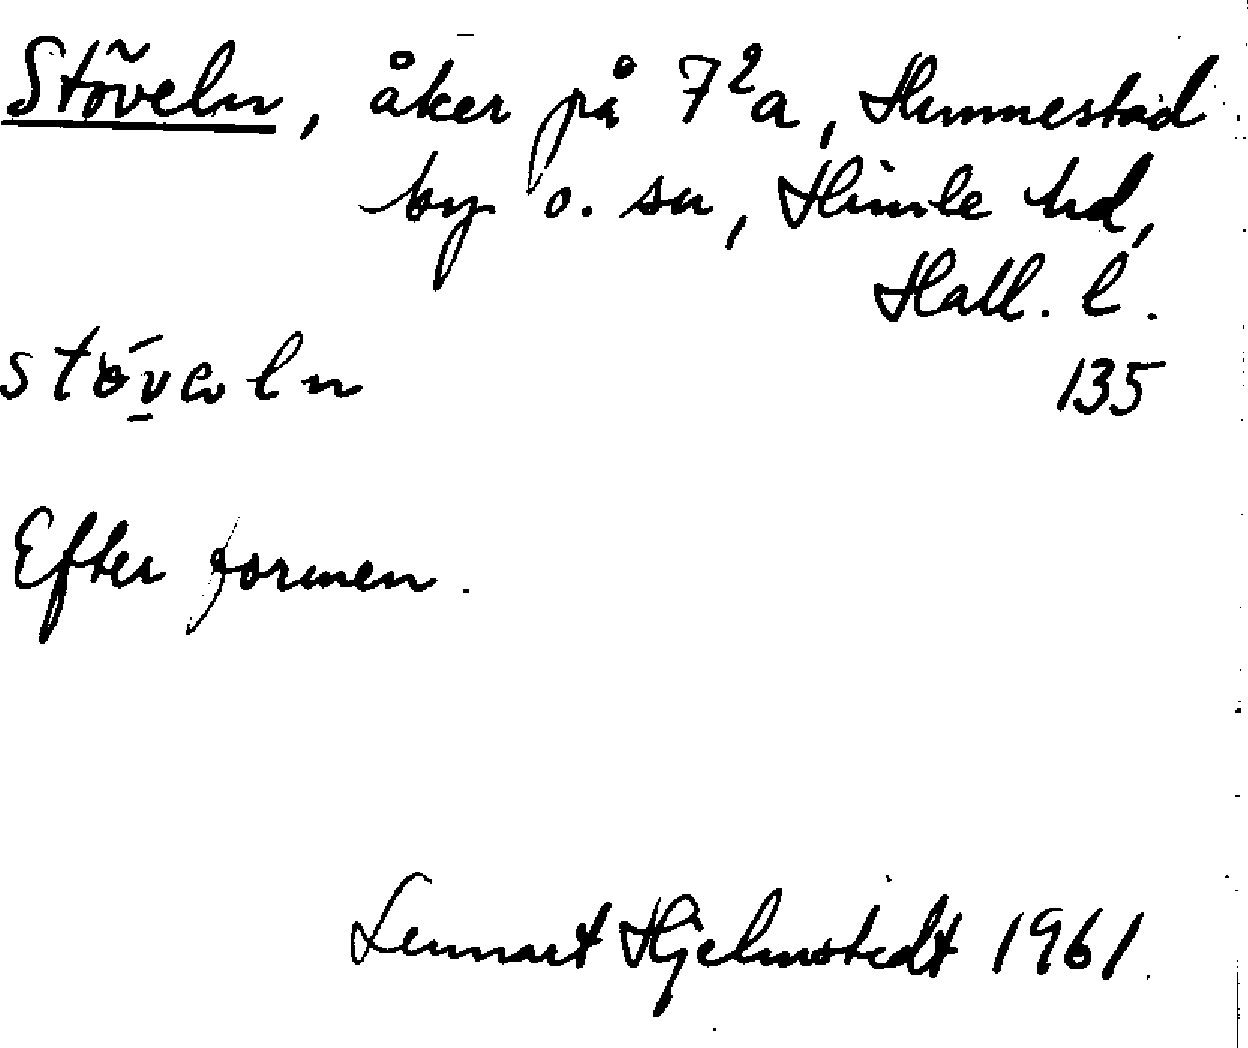 Stöveln, åker på 7²a, Hunnestad
by o. sn, Himle hd,
Hall. l.
135
Efter formen.
Lennart Hjelmstedt 1961